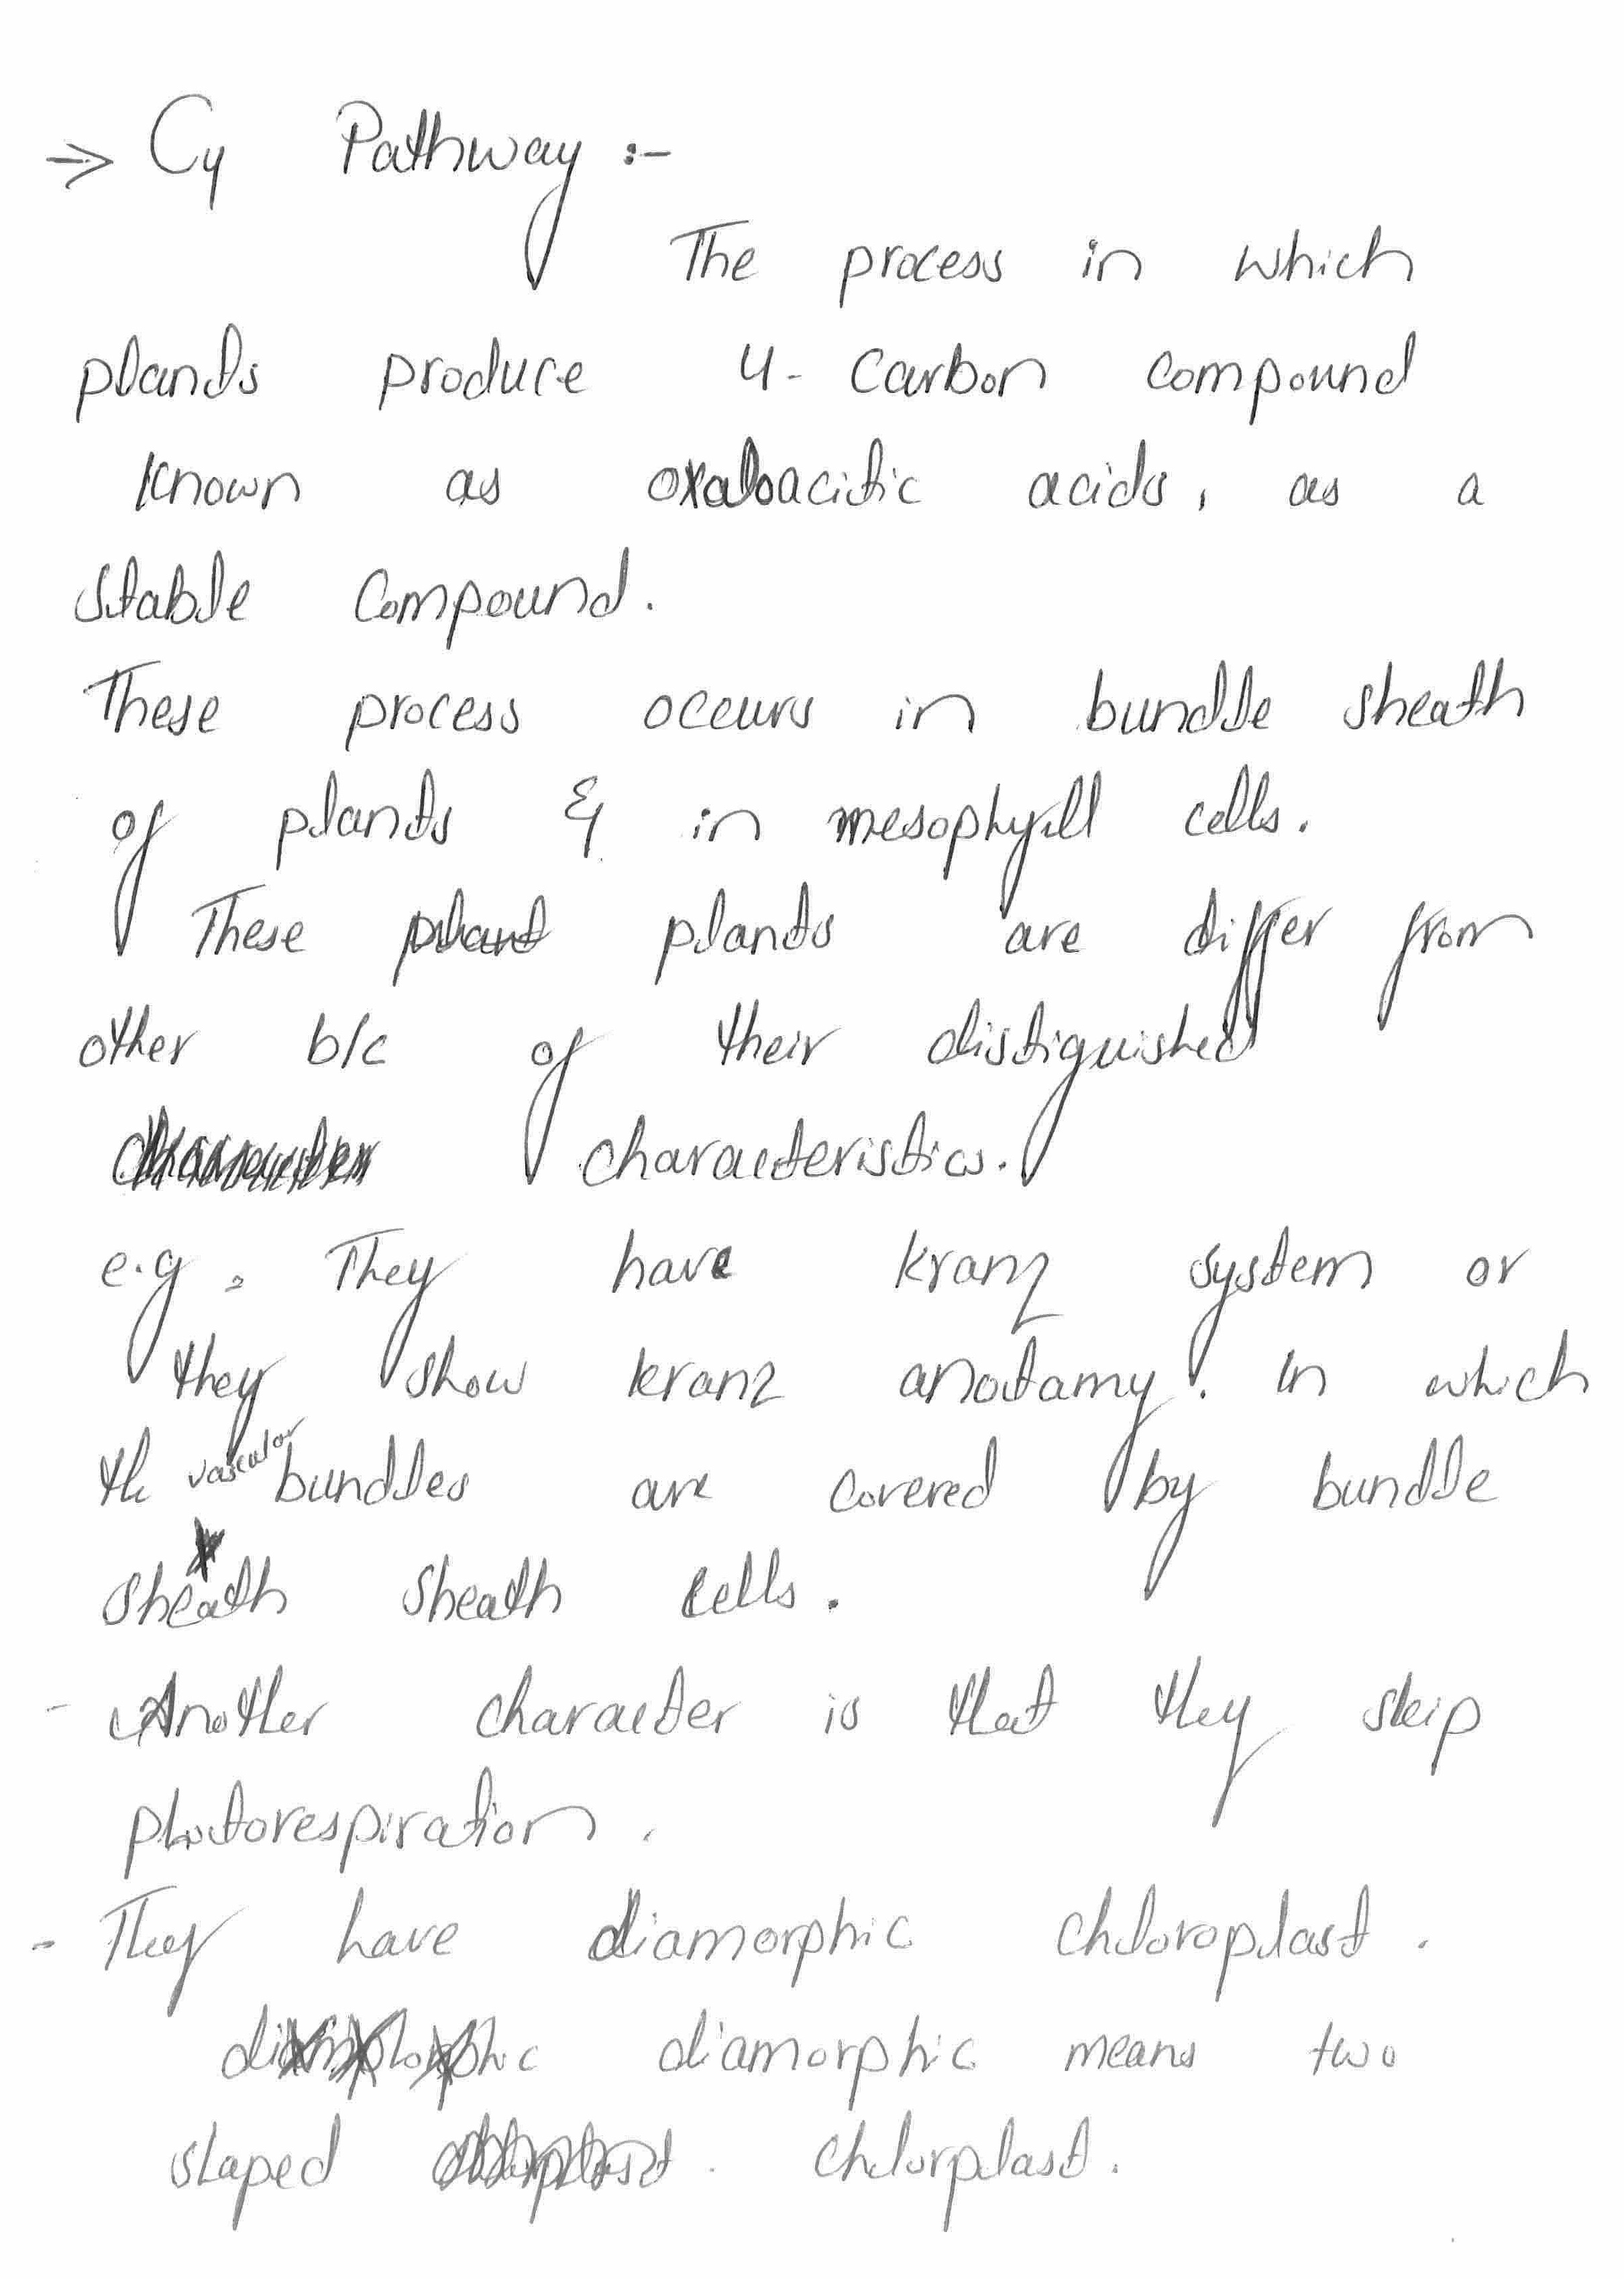 => C4 Pathway :-
The process in which
plants produce 4- Carbon compound
known as oxaloacitic acids, as a
stable compound.
These process occurs in bundle sheath
of plants & in mesophyll cells.
These plant plants are differ from
other b/c of their distiguished
characteristics.
e.g. They have kranz system or
they show kranz anotamy. In which
the vascular bundles are covered by bundle
sheath sheath cells.
- Another character is that they skip
photorespiration.
- They have diamorphic chloroplast.
diamorphic means two
shaped chlorplast.